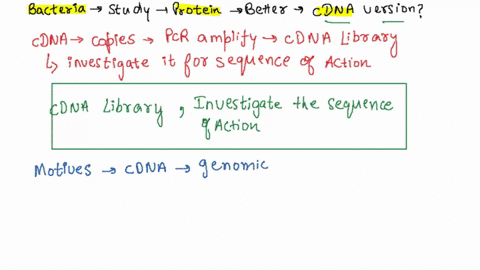 Bacteria → Study → Protein → Better → cDNA version?
cDNA → copies → PCR amplify → cDNA Library
↳ investigate it for sequence of Action
cDNA Library, Investigate the sequence
of Action
Motives → cDNA → genomic